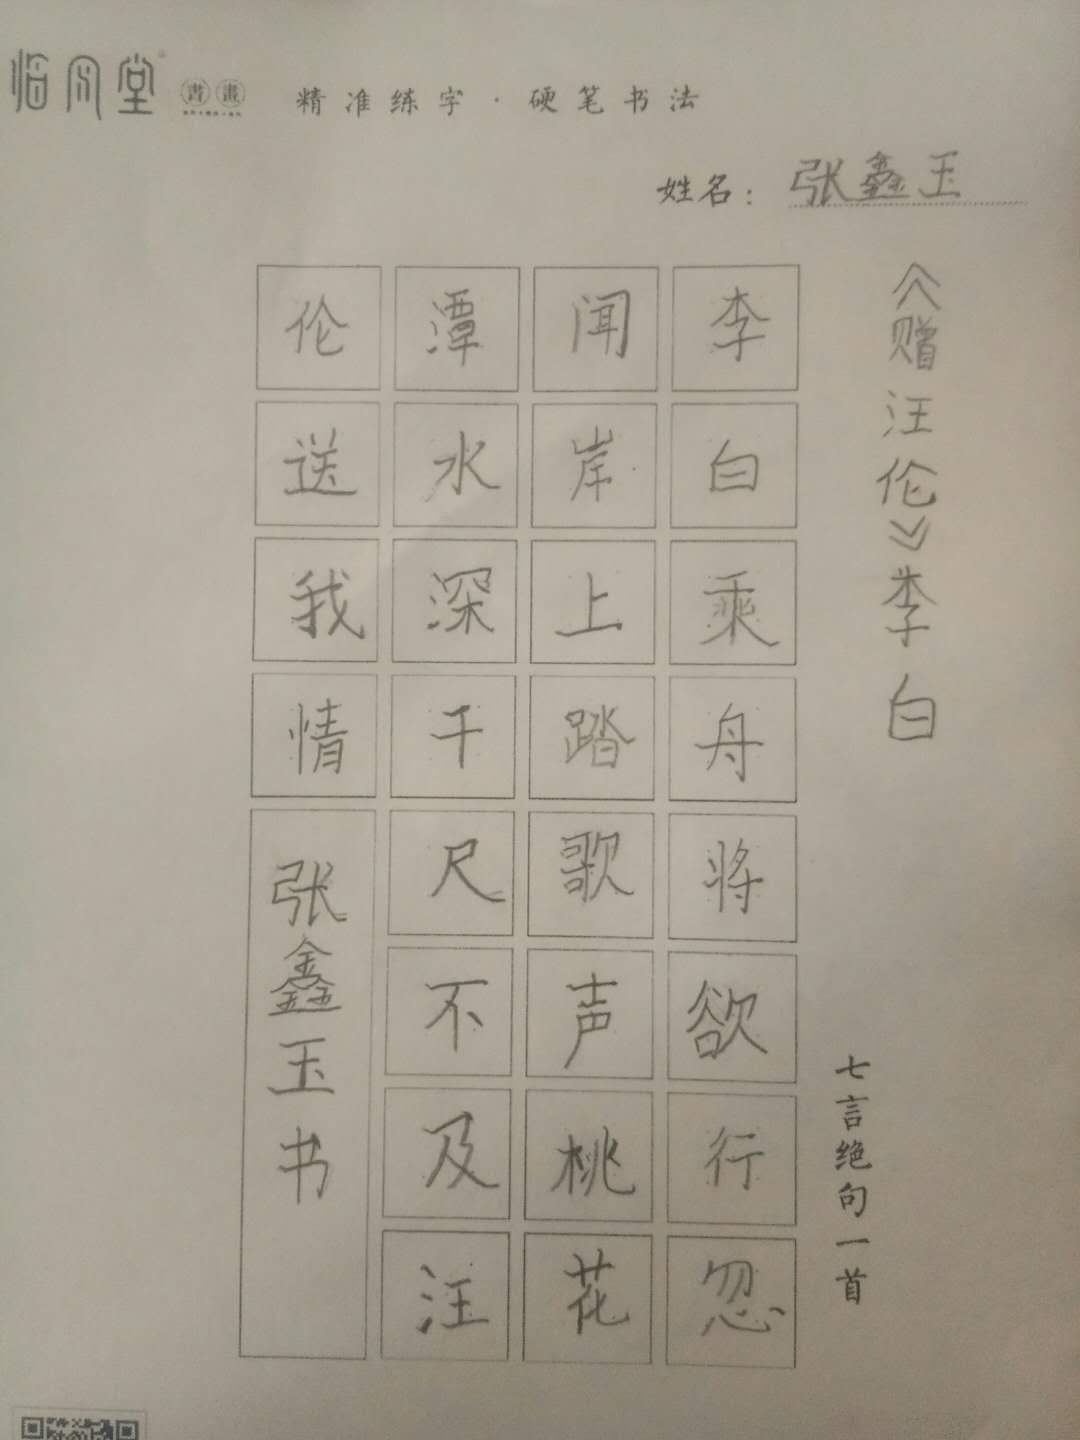 临风堂 書畫 精准练字·硬笔书法
姓名：张鑫玉
《赠汪伦》李白
七言绝句一首
李白乘舟将欲行忽
闻岸上踏歌声桃花
潭水深千尺不及汪
伦送我情
张鑫玉书